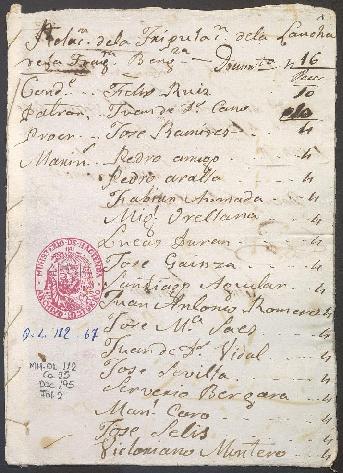 Relac.n de la Tripulac.n de la Lancha
Frag.ta Beng.za Docum.to n 16
Pesos
Cond.r Felis Ruiz 10
Patron Juan de D.s Cano
Proer. Jose Ramires 4
Marin.s Pedro amigo 4
Pedro aralla 4
Fabian Ahumada 4
Mig.l Orellana 4
Lucas Duran 4
Jose Gainza 4
Santiago Aguilar 4
Juan Antonio Romero 4
Jose M.a Saes 4
Juan de D.s Vidal 4
Jose Sevilla 4
Serverio Bergara 4
Man.l Caro 4
Jose Selis 4
Victoriano Montero 4
MINISTERIO DE HACIENDA
O.L. 112-67
MH.OL 112
Ca 35
Doc 95
Fol 2